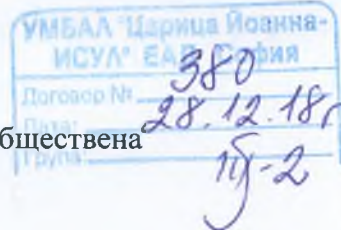 УМБАЛ "Царица Йоанна-
ИСУЛ" ЕАД, София
Договор № 380
Дата: 28.12.18г
бществена
Група: